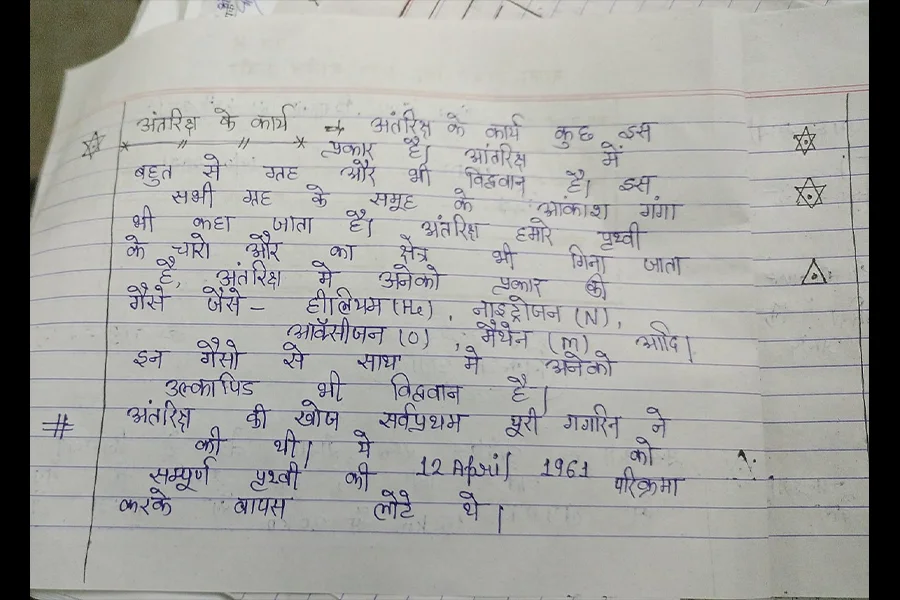 अंतरिक्ष के कार्य → अंतरिक्ष के कार्य कुछ इस
प्रकार है। आंतरिक्ष में
बहुत से ग्रह और भी विद्ववान है। इस
सभी ग्रह के समूह के आकाश गंगा
भी कहा जाता है। अंतरिक्ष हमारे पृथ्वी
के चारो और का क्षेत्र भी गिना जाता
है, अंतरिक्ष मे अनेको प्रकार की
गैसे जैसे - हीलियम (He), नाइट्रोजन (N),
ऑक्सीजन (O), मैथेन (m) आदि।
इन गैसो से साथ मे अनेको
उल्कापिड भी विद्ववान है।
# अंतरिक्ष की खोज सर्वप्रथम यूरी गगारिन ने
की थी। ये 12 April 1961 को
सम्पूर्ण पृथ्वी की परिक्रमा
करके बापस लौटे थे।